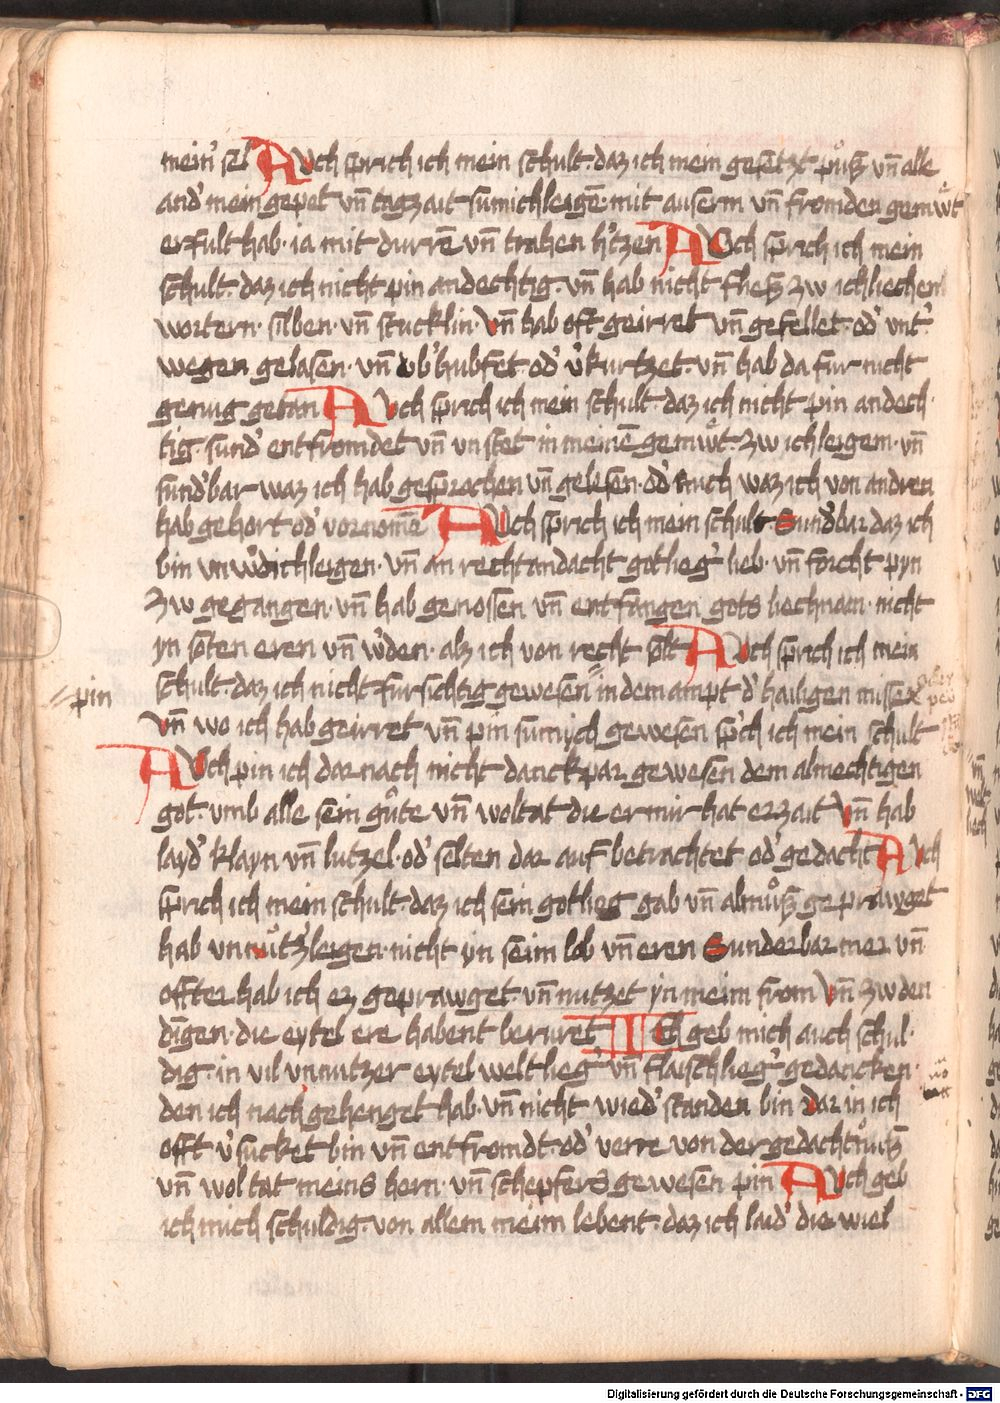 mein' sel Auch sprich ich mein schult· daz ich mein gesetzt půsz vn̄ alle
and' mein gepet vn̄ tagzait sumichleigē· mit auserm vn̄ fromden gemůt
erfult hab· ia mit durrē vn̄ trahen h'tzen Auch sprich ich mein
schult· daz ich nicht pin andechtig· vn̄ hab nicht fliesz zw ichliechen
wortern· silben· vn̄ stucklin· Vn̄ hab oft geirret vn̄ gefellet· od' vnt'
wegen gelasen· vn̄ vb'hubfet· od' v'kurtzet· vn̄ hab da fur nicht
genug getan Auch sprich ich mein schult· daz ich nicht pin andech·
tig· sund' entfromdet vn̄ vnstet in meinē gemůt· zw ichleigem· vn̄
sund'bar waz ich hab gesprochen vn̄ gelesen· od' auch waz ich von andren
hab gehort od' vornomē Auch sprich ich mein schult· Sund'bar daz ich
bin vnw'dichleigen· vn̄ an recht andacht gotlieg' lieb· vn̄ forcht pyn
zw gegangen· vn̄ hab genossen vn̄ entfangen gots leichnam· nicht
yn soten eren vn̄ w'den· alz ich von recht solt Auch sprich ich mein
pin
schult· daz ich nicht fursichtig gewesen in dem ampt d' hailigen misse
Vn̄ wo ich hab geirret vn̄ pin sumich gewesen sp'ch ich mein schult
Auch pin ich dar nach nicht danckpar gewesen dem almechtigen
got· vmb alle sein gůte vn̄ woltat die er mir hat erzait Vn̄ hab
layd' klayn vn̄ lutzel· od' selten dar auf betrachtet od' gedacht Auch
sprich ich mein schult· daz ich sein gotlieg gab vn̄ almůsz geprawget
hab vnnůtzleigen· nicht yn seim lob vn̄ eren Sunderbar mer vn̄
offter hab ich ez geprawget· vn̄ nutzet yn meim from Vn̄ zw den
dīgen· die eytel ere habent beruret Ich geb mich auch schul·
dig· in vil vnnutzer eytel weltlieg' vn̄ flaischlieg' gedancken·
den ich nach gehenget hab· vn̄ nicht wied'standen bin Dar in ich
offt v'sucket bin vn̄ entfromdt· od' verre von der gedachtnůsz
vn̄ woltat meins hern· vn̄ schepfers gewesen pin Auch geb
ich mich schuldig· von allem meim lebent· daz ich laid' die wiel
Digitalisierung gefördert durch die Deutsche Forschungsgemeinschaft - DFG